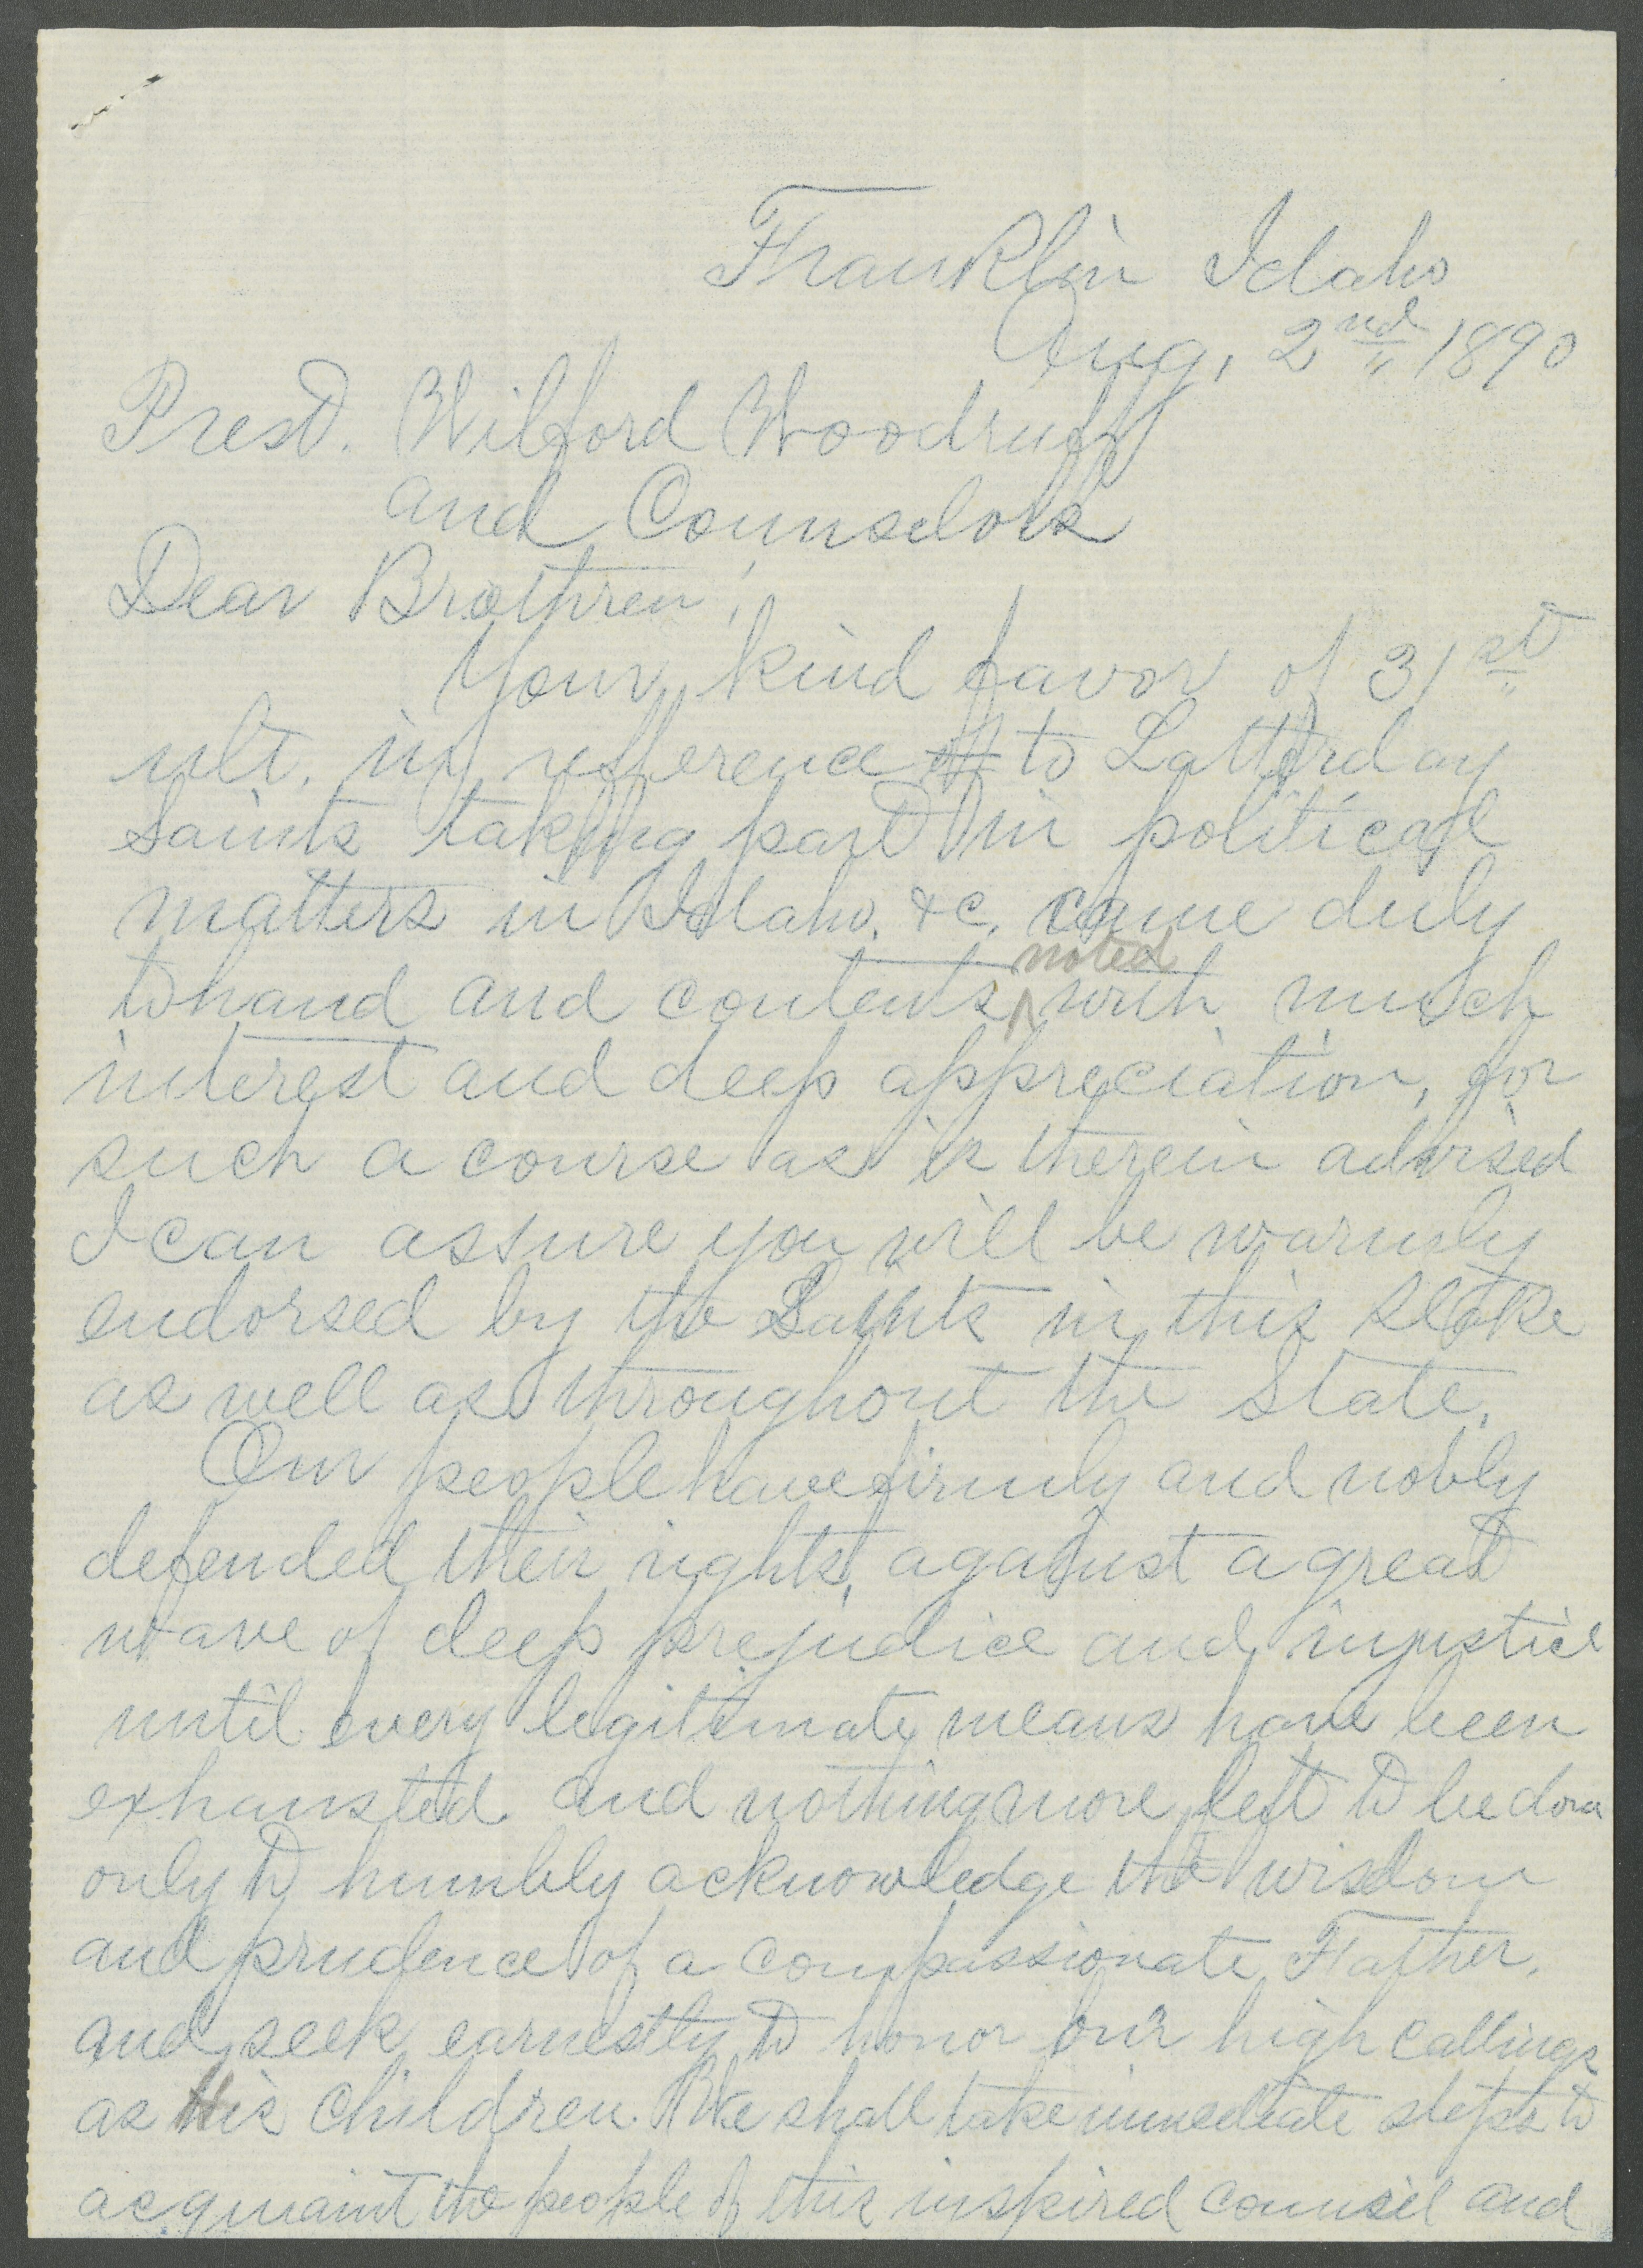 Franklin Idaho
Aug, 2nd 1890
Prest. Wilford Woodruff
and Counselors
Dear Brethren,
Your kind favor of 31st
ult. in refference to Latterday
Saints taking part in political
matters in Idaho. &c. came duly
to hand and contents noted with much
interest and deep appreciation, for
such a course as is therein advised
I can assure you will be warmly
endorsed by the Saints in this stake
as well as throughout the State.
Our people have firmly and nobly
defended their rights, against a great
wave of deep prejudice and injustice
until every legitimate means have been
exhausted and nothing more left to be done
only to humbly acknowledge the wisdom
and prudence of a compassionate Father,
and seek earnestly to honor our high callings
as His children. We shall take immediate steps to
acquaint the people of this inspired counsel and